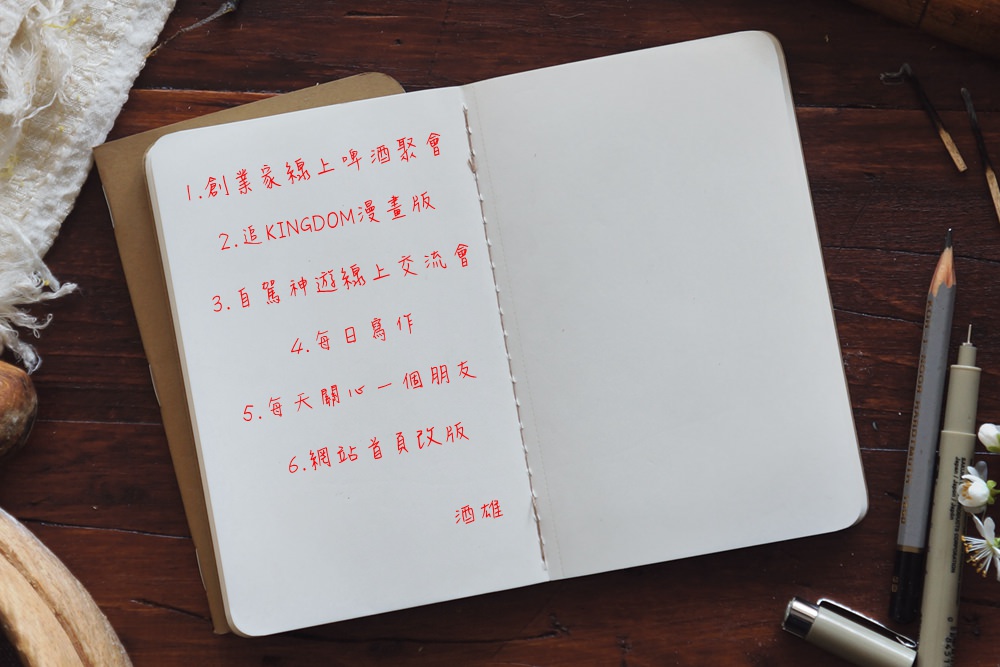 1.創業家線上啤酒聚會
2.追KINGDOM漫畫版
3.自駕神遊線上交流會
4.每日寫作
5.每天關心一個朋友
6.網站首頁改版
酒雄